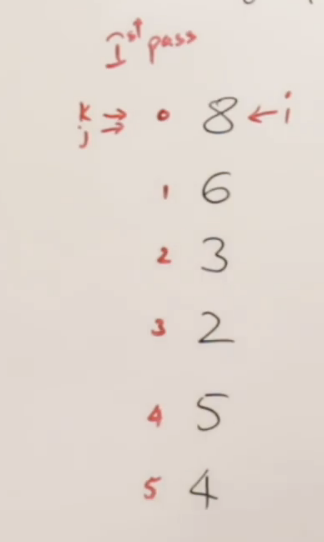 Ist pass
k → 0 8 ← i
j →
1 6
2 3
3 2
4 5
5 4